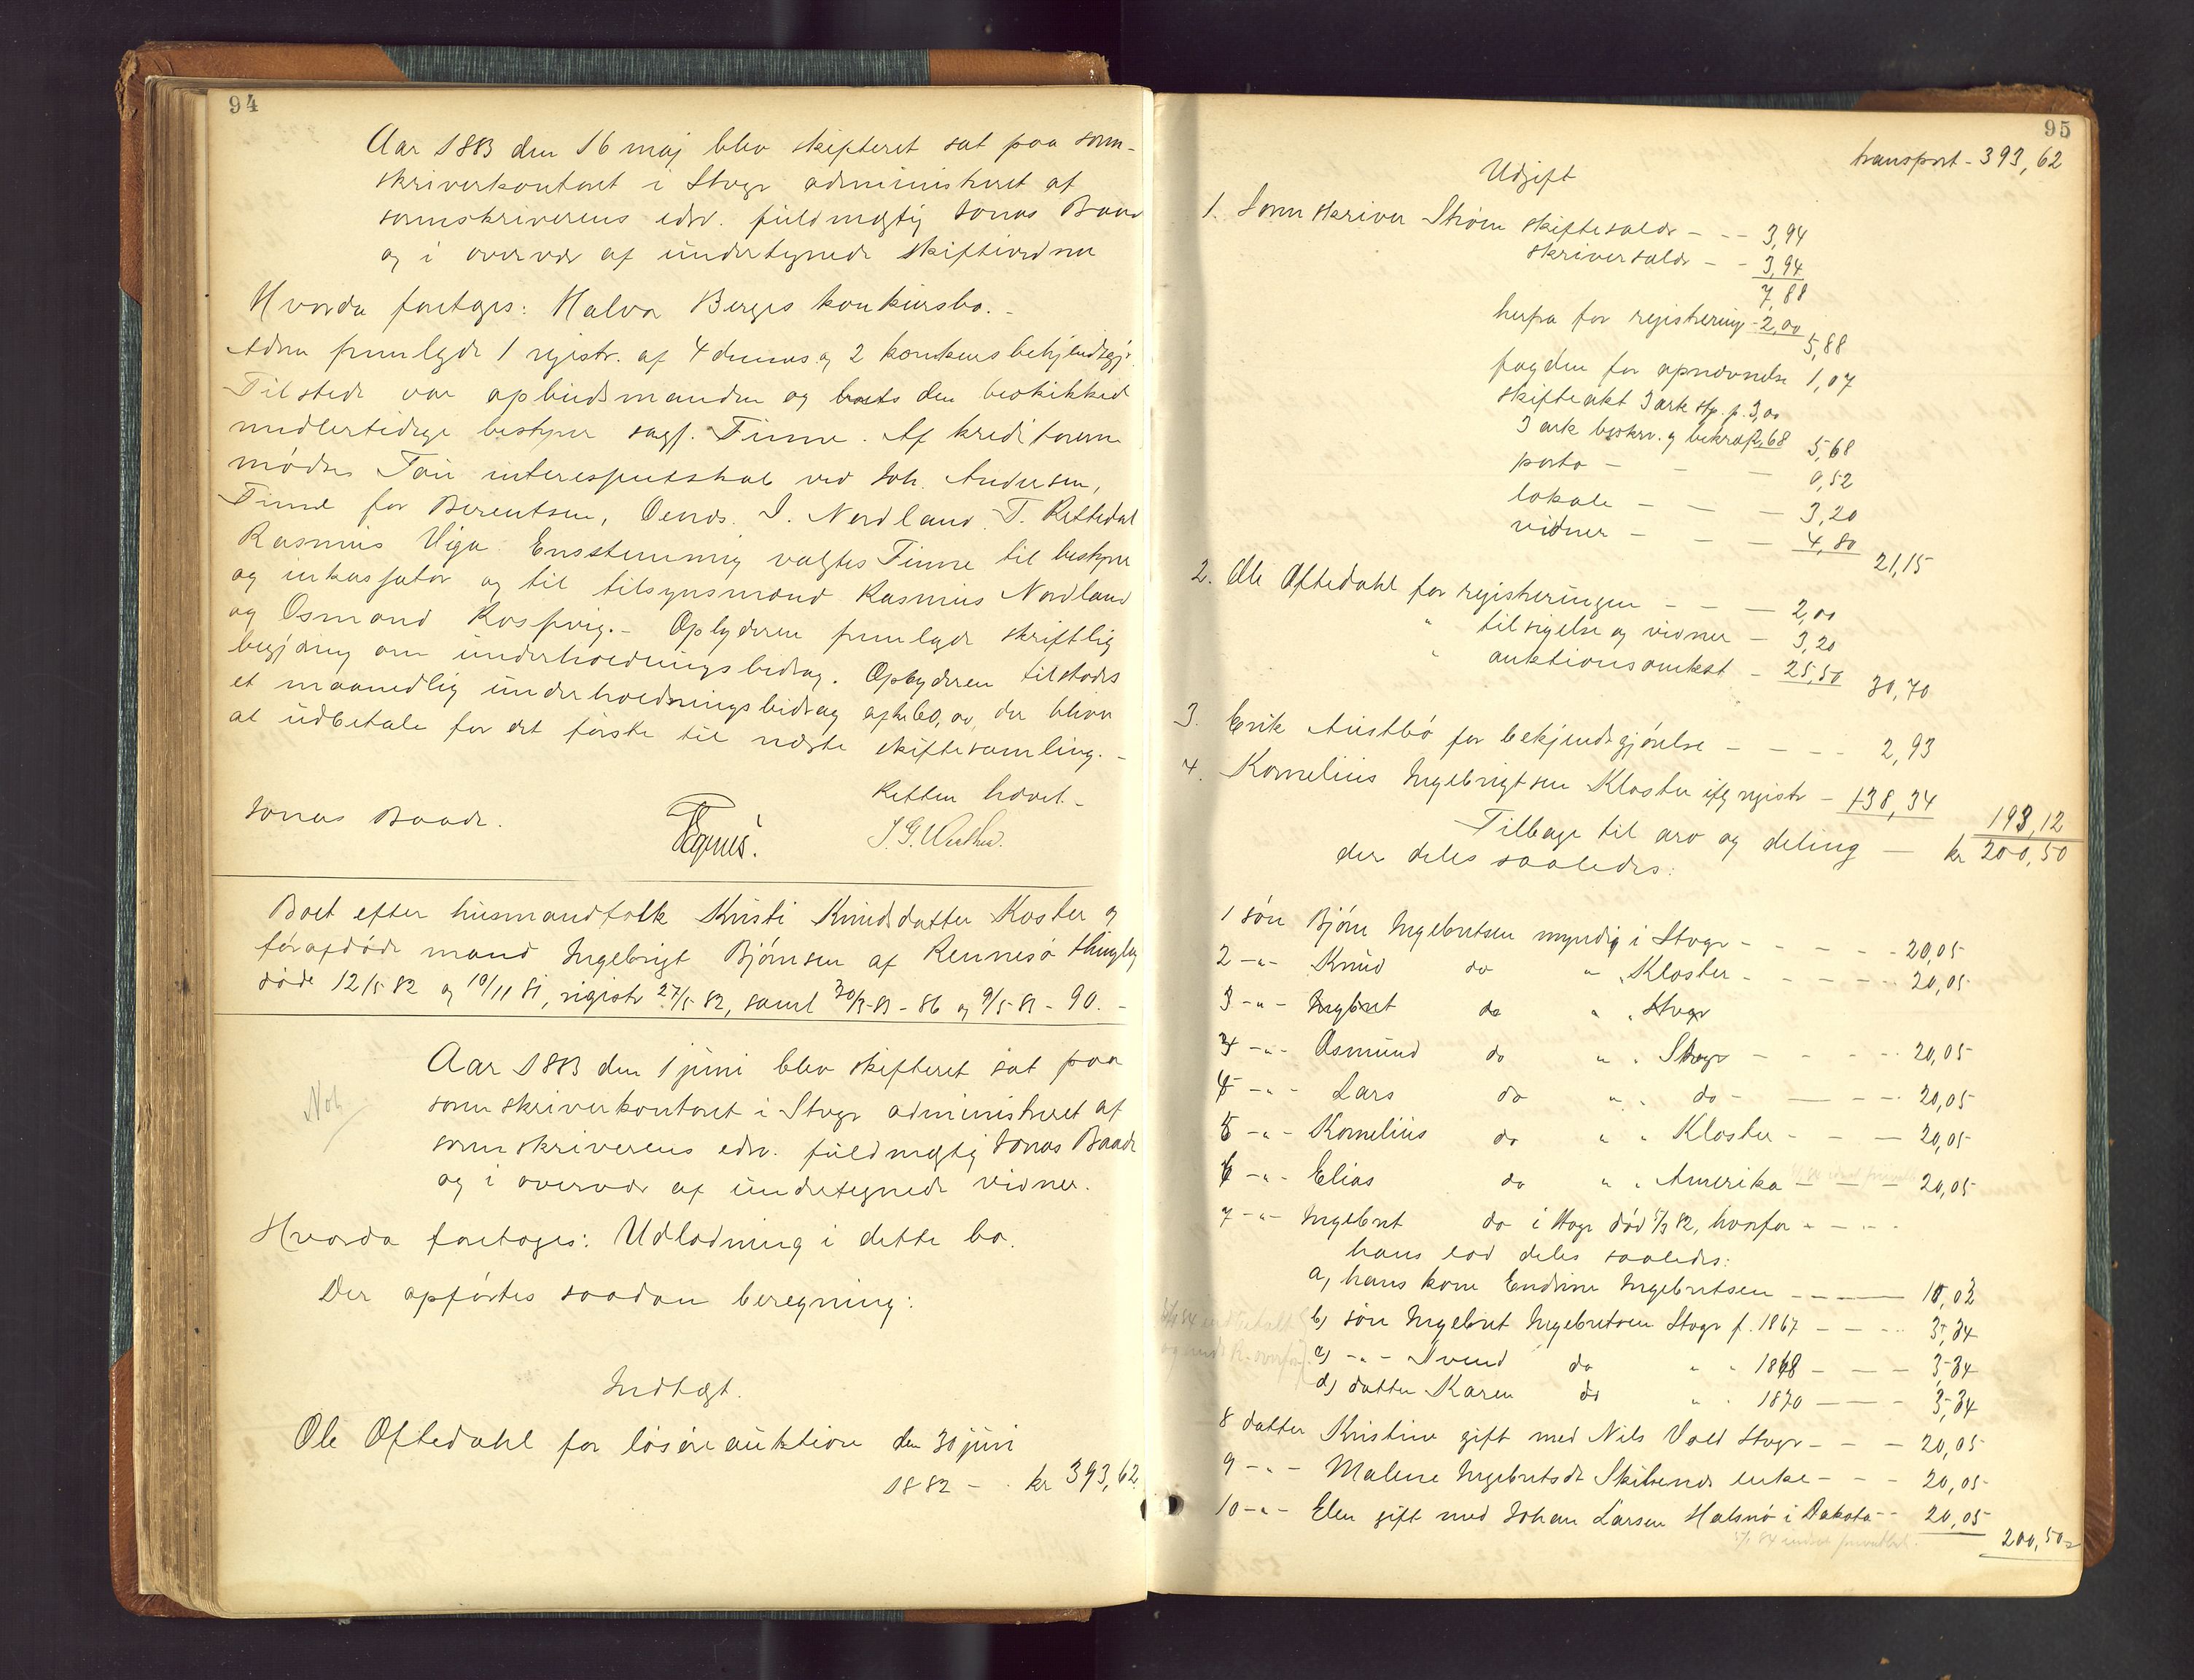 94
Aar 1883 den 16 maj blev skifteret sat paa sorn-
skriverkontoret i Stvgr administreret af
sornskriverens edsv. fuldmægtig Jonas Baade
og i overvær af undertegnede skiftevidner
Hvorda foretoges: Halvor Berges konkursbo. -
Adm fremlagde 1 registr. af 4 dennes og 2 konkursbekjendtgjr.
Tilstede var opbudsmanden og boets den beskikked
midlertidige bestyrer sagf. Finne. Af kreditorerne
mødte Tou interessentskab ved Joh. Andersen,
Finne for Berentsen, I. Nordland, T. Rettedal
Rasmus Viga. Enstemmig valgtes Finne til bestyrer
og inkassator og til tilsynsmænd Rasmus Nordland
og Osmand Rossavig. - Opbyderen fremlagde skriftlig
begjæring om underholdningsbidrag. Opbyderen tilstodes
et maanedlig underholdningsbidrag af kr 60,00, der bliver
at udbetale for det første til næste skiftesamling. -
Retten hævet. -
Jonas Baade.
Boet efter husmandfolk Kristi Knudsdatter Kloster og
førafdøde mand Ingebrigt Bjørnsen af Rennesø thinglag
døde 12/5 82 og 10/11 81, registr 27/5 82, saml 30/3 83 - 86 og 9/5 83 - 90. -
Aar 1883 den 1 juni blev skifteret sat paa
sornskriverkontoret i Stvgr administreret af
sornskriverens edsv. fuldmægtig Jonas Baade
og i overvær af undertegnede vidner.
Hvorda foretoges: Udlodning i dette bo.
Der opførtes saadan beregning:
Indtægt.
Ole Oftedahl for løsøreauktion den 30 juni
1882 - kr 393,62
95
transport - 393,62
Udgift
1. Sornskriver Strøm skiftesaldr - - - 3,94
skriversaldr - - 3,94
7,88
herfra for registrering - 2,00 5,88
fogden for opnævnelse 1,07
skifteakt 3 ark stp. p. 3,00
3 ark beskrv. og bekræft 2,68 5,68
porto - - - 0,52
lokale - - - 3,20
vidner - - - 4,80 21,15
2. Ole Oftedahl for registreringen - - - 2,00
" tilsigelse og vidner - 3,20
" auktionsomkost - 25,50 30,70
3. Erik Austbø for bekjendtgjørelse - - - - 2,93
4. Kornelius Ingebrigtsen Kloster iflg registr - 138,34
193,12
Tilbage til arv og deling - kr 200,50
der deles saaledes:
1 søn Bjørn Ingebretsen myndig i Stvgr - - - - - 20,05
2 -"- Knud do " " Kloster - - - - - 20,05
3 -"- Ingebret do " " Stvgr
3 -"- Asmund do " " Stvgr - - - - 20,05
4 -"- Lars do " " do - - - - 20,05
5 -"- Kornelius do " " Kloster - - - 20,05
6 -"- Elias do " " Amerika - - - 20,05
7 -"- Ingebret do i Stvgr død 5/3 82, hvorfor - - - -
hans lod deles saaledes:
a, hans kone Endrine Ingebretsen - - - - 10,03
b, søn Ingebret Ingebretsen Stvgr f. 1867 - - - 3,34
c, -"- Svend do " " 1868 - - - 3,34
d, datter Karen do " " 1870 - - - 3,34
8 datter Kristine gift med Nils Vold Stvgr - - - 20,05
9 -"- Malene Ingebretsdr Skibenæs enke - - - 20,05
10 -"- Elen gift med Johan Larsen Halsnø i Dakota - - 20,05
200,50